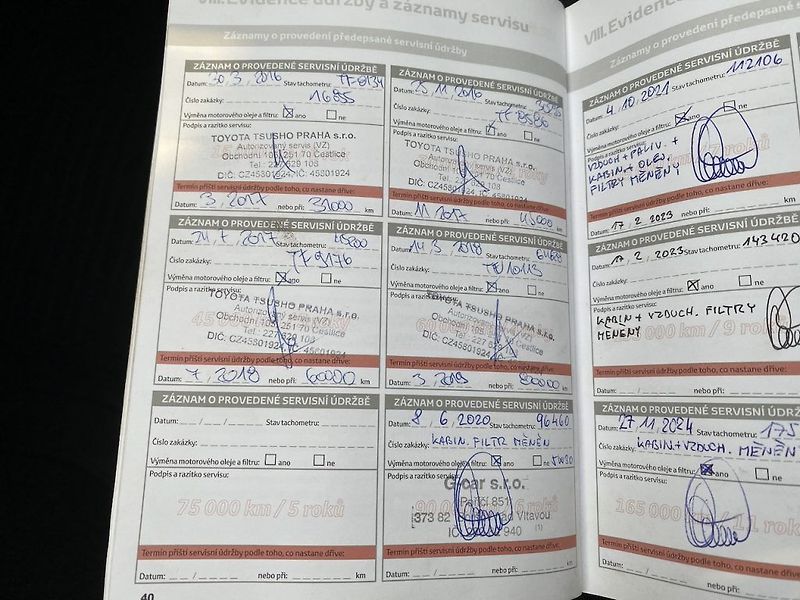 VIII. Evidence údržby a záznamy servisu
Záznamy o provedení předepsané servisní údržby
ZÁZNAM O PROVEDENÉ SERVISNÍ ÚDRŽBĚ
Datum: 30.3.2016 Stav tachometru:
Číslo zakázky: 16855
Výměna motorového oleje a filtru: ano ne
Podpis a razítko servisu:
TOYOTA TSUSHO PRAHA s.r.o.
Autorizovaný servis (VZ)
251 70 Čestlice
DIČ: CZ45801924
Termín příští servisní údržby podle toho, co nastane dříve:
Datum: 3.2017 nebo při: 31000 km
ZÁZNAM O PROVEDENÉ SERVISNÍ ÚDRŽBĚ
Datum: 23.11.2016 Stav tachometru:
Číslo zakázky:
Výměna motorového oleje a filtru: ano ne
Podpis a razítko servisu:
TOYOTA TSUSHO PRAHA s.r.o.
Autorizovaný servis (VZ)
Termín příští servisní údržby podle toho, co nastane dříve:
Datum: 11.2017 nebo při: 45000 km
ZÁZNAM O PROVEDENÉ SERVISNÍ ÚDRŽBĚ
Datum: 24.7.2017 Stav tachometru: 45200
Číslo zakázky: TF 9176
Výměna motorového oleje a filtru: ano ne
Podpis a razítko servisu:
TOYOTA TSUSHO PRAHA s.r.o.
Autorizovaný servis (VZ)
DIČ: CZ45801924
Termín příští servisní údržby podle toho, co nastane dříve:
Datum: 7.2018 nebo při: 60000 km
ZÁZNAM O PROVEDENÉ SERVISNÍ ÚDRŽBĚ
Datum: 14.3.2018 Stav tachometru:
Číslo zakázky: TF 10113
Výměna motorového oleje a filtru: ano ne
Podpis a razítko servisu:
TOYOTA TSUSHO PRAHA s.r.o.
Autorizovaný servis (VZ)
Termín příští servisní údržby podle toho, co nastane dříve:
Datum: 3.2019 nebo při: 80000 km
ZÁZNAM O PROVEDENÉ SERVISNÍ ÚDRŽBĚ
Datum: Stav tachometru:
Číslo zakázky:
Výměna motorového oleje a filtru: ano ne
Podpis a razítko servisu:
75 000 km / 5 roků
Termín příští servisní údržby podle toho, co nastane dříve:
Datum: nebo při: km
ZÁZNAM O PROVEDENÉ SERVISNÍ ÚDRŽBĚ
Datum: 8.6.2020 Stav tachometru: 96460
Číslo zakázky: KABIN. FILTR MĚNĚN
Výměna motorového oleje a filtru: ano ne 5W30
Podpis a razítko servisu:
G-car s.r.o.
Poříčí 851
373 82
Termín příští servisní údržby podle toho, co nastane dříve:
Datum: nebo při: km
40
VIII. Evidence
Záznamy o provedení předepsané
ZÁZNAM O PROVEDENÉ SERVISNÍ ÚDRŽBĚ
Datum: 4.10.2021 Stav tachometru: 112106
Číslo zakázky:
Výměna motorového oleje a filtru: ano ne
Podpis a razítko servisu:
VZDUCH + PALIV. +
KABIN + OLEJ.
FILTRY MĚNĚNY
Termín příští servisní údržby podle toho, co nastane dříve:
Datum: 17.2.2023 nebo při: km
ZÁZNAM O PROVEDENÉ SERVISNÍ ÚDRŽBĚ
Datum: 17.2.2023 Stav tachometru: 143420
Číslo zakázky:
Výměna motorového oleje a filtru: ano ne
Podpis a razítko servisu:
KABIN + VZDUCH. FILTRY
MĚNĚNY
km / 9 roků
Termín příští servisní údržby podle toho, co nastane dříve:
Datum: nebo při:
ZÁZNAM O PROVEDENÉ SERVISNÍ ÚDRŽBĚ
Datum: 27.11.2024 Stav tachometru: 175
Číslo zakázky: KABIN+VZDUCH. MĚNĚN
Výměna motorového oleje a filtru: ano ne
Podpis a razítko servisu:
165 000 km / 11 roků
Termín příští servisní údržby podle toho, co nastane dříve:
Datum: nebo při: